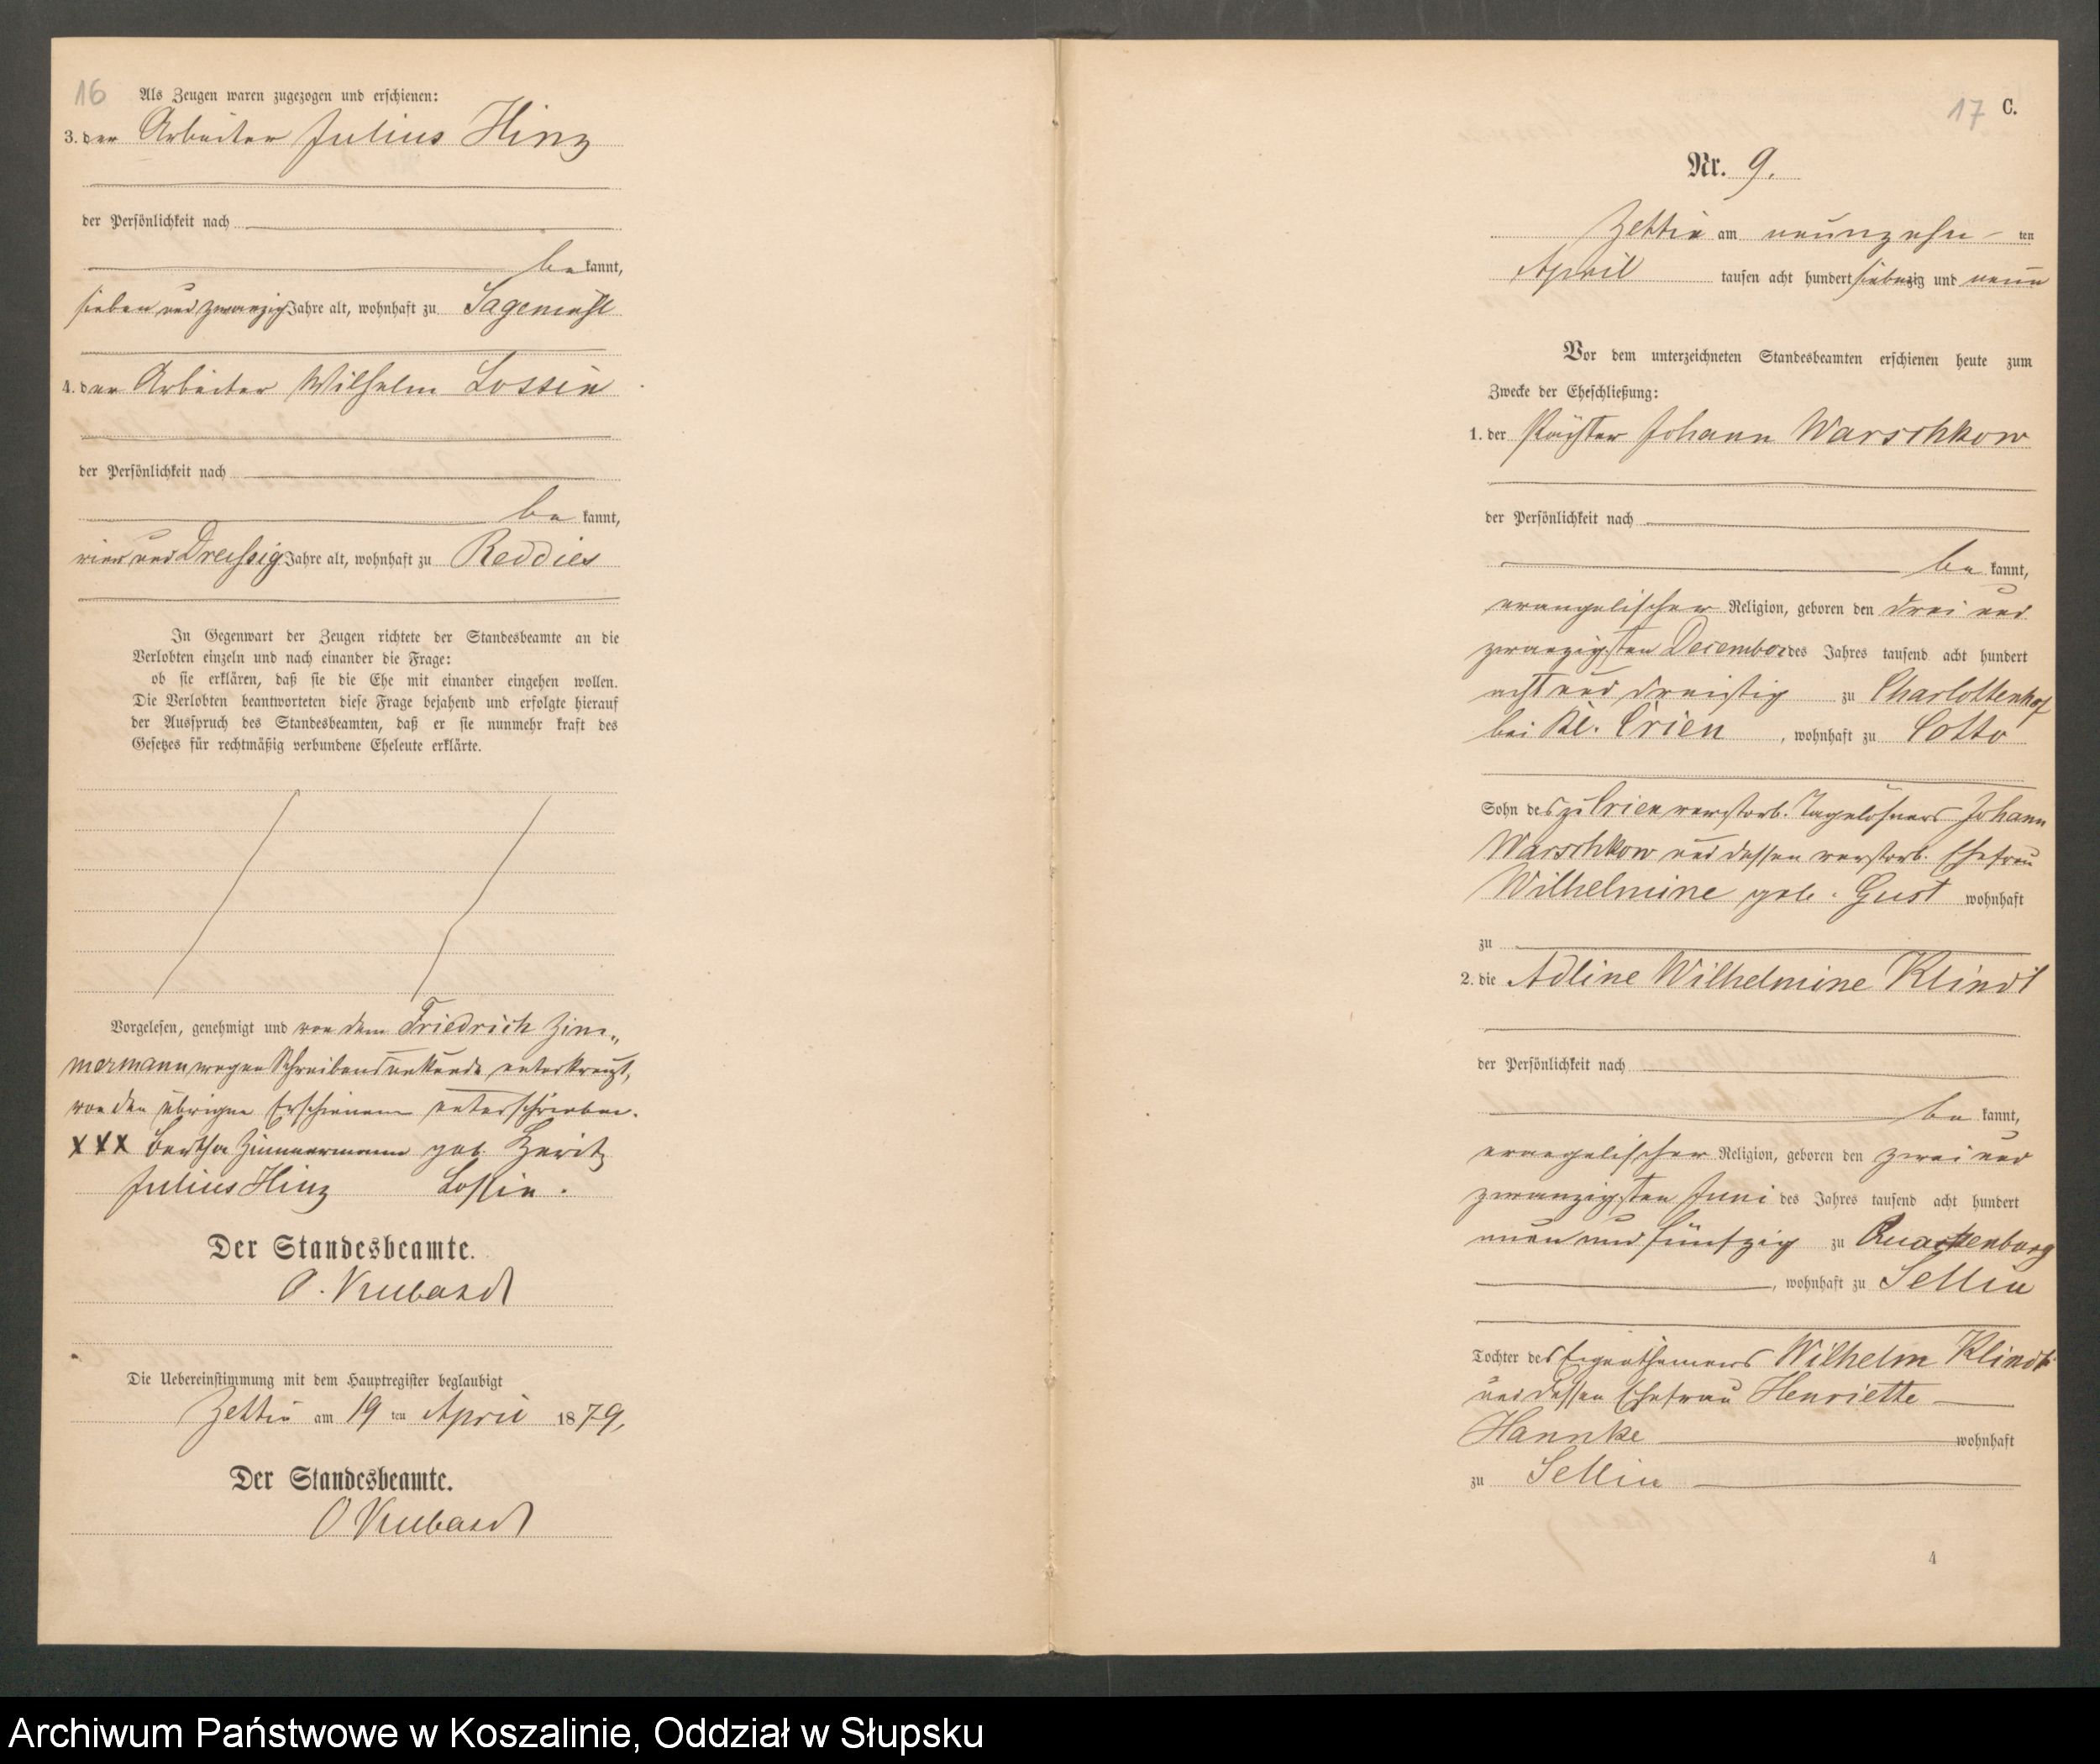 16
Als Zeugen waren zugezogen und erschienen:
3. der Arbeiter Julius Hinz
der Persönlichkeit nach
be kannt,
sieben und zwanzig Jahre alt, wohnhaft zu Sagemühl
4. der Arbeiter Wilhelm Lossin
der Persönlichkeit nach
be kannt,
vier und Dreißig Jahre alt, wohnhaft zu Reddies
In Gegenwart der Zeugen richtete der Standesbeamte an die
Verlobten einzeln und nach einander die Frage:
ob sie erklären, daß sie die Ehe mit einander eingehen wollen.
Die Verlobten beantworteten diese Frage bejahend und erfolgte hierauf
der Ausspruch des Standesbeamten, daß er sie nunmehr kraft des
Gesetzes für rechtmäßig verbundene Eheleute erklärte.
Vorgelesen, genehmigt und von dem Friedrich Zim-
mermann wegen Schreibensunkunde unterkreuzt,
von den übrigen Erschienenen unterschrieben.
XXX Bertha Zimmermann geb.
Julius Hinz Lossin.
Der Standesbeamte.
O.
Die Uebereinstimmung mit dem Hauptregister beglaubigt
Zettin am 19 ten April 1879,
Der Standesbeamte.
O
17 C.
Nr. 9.
Zettin am neunzehn ten
April tausen acht hundert siebenzig und neun
Vor dem unterzeichneten Standesbeamten erschienen heute zum
Zwecke der Eheschließung:
1. der Pächter Johann Warschkow
der Persönlichkeit nach
be kannt,
evangelischer Religion, geboren den drei und
zwanzigsten December des Jahres tausend acht hundert
acht und dreißig zu Charlottenhof
bei Kl. Crien, wohnhaft zu Cotto
Sohn des zu Crien verstorb. Tagelöhners Johann
Warschkow und dessen verstorb. Ehefrau
Wilhelmine geb. Gust wohnhaft
zu
2. die Adline Wilhelmine Klindt
der Persönlichkeit nach
be kannt,
evangelischer Religion, geboren den zwei und
zwanzigsten Juni des Jahres tausend acht hundert
neun und fünfzig zu Quackenburg
, wohnhaft zu Sellin
Tochter des Eigenthümers Wilhelm Klindt
und dessen Ehefrau Henriette
Hannke wohnhaft
zu Sellin
Archiwum Państwowe w Koszalinie, Oddział w Słupsku